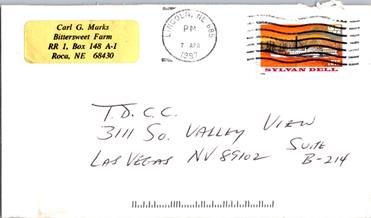 Carl G. Marks
Bittersweet Farm
RR 1, Box 148 A-1
Roca, NE 68430
LINCOLN, NE 685
PM
7 APR
1997
SYLVAN DELL
T.D.C.C.
3111 SO. VALLEY VIEW
SUITE
LAS VEGAS NV 89102 B-214